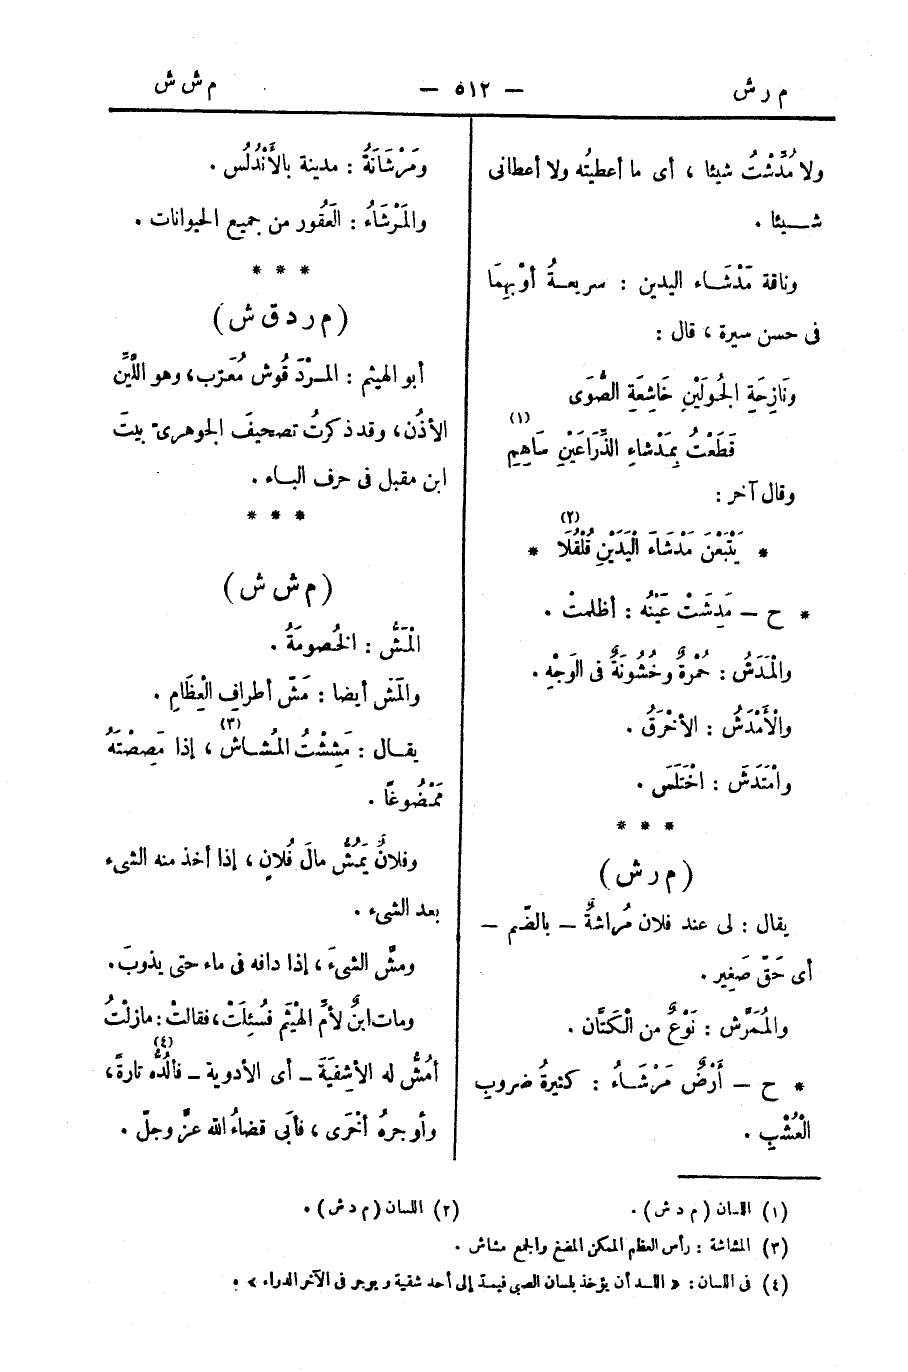 م ر ش — ٥١٢ — م ش ش
ولا مُدِّشْتُ شيئا ، أى ما أعطيتُه ولا أعطانى
شـــيئا .
وناقة مَدْشَـاء اليدين : سريعــةُ أوْبِهِمَا
فى حسن سيرة ، قال :
وَنَازِحَةِ الجُولَيْنِ خَاشِعَةِ الصُّوَى
قَطَعْتُ بِمَدْشاءِ الذِّرَاعَيْنِ سَاهِمِ (١)
وقال آخر :
* يَتْبَعْنَ مَدْشَاءَ الْيَدَيْنِ قُلْقُلَا (٢) *
* ح — مَدِشَتْ عَيْنُه : أظلمتْ .
والْمَدَشُ : حُمْرةٌ وخُشُونَةٌ فى الوَجْهِ .
والْأَمْدَشُ : الأخْرَقُ .
وامْتَدَشَ : اخْتَلَسَ .
* * *
(م ر ش)
يقال : لى عند فلان مُراشةٌ — بالضّم —
أى حَقّ صَغِير .
والمُمَرَّش : نَوْعٌ من الْكَتَّان .
* ح — أَرْضٌ مَرْشَـاءُ : كثيرةُ ضروبِ
الْعُشْبِ .
ومَرْشَانَةُ : مدينة بالأَنْدَلُسِ .
والمَرْشَاءُ : العَقُور من جميع الحيوانات .
* * *
(م ر د ق ش)
أبو الهيثم : المَـرْدَقُوش مُعَرَّب، وهو اللَّيِّن
الأذُن، وقد ذكرتُ تصحيفَ الجوهرىّ بيتَ
ابن مقبل فى حرف البـاء .
* * *
(م ش ش)
الْمَشُّ : الخُصومَةُ .
والمَش أيضا : مَشّ أطرافِ الْعِظَامِ .
يقــال : مَشِشْتُ المُشـاشَ (٣) ، إذا مَصِصْتَهُ
مَمْضُوغًا .
وفلانٌ يَمُشُّ مالَ فُلانٍ ، إذا أخذ منه الشىء
بعد الشىء .
ومشَّ الشىءَ ، إذا دافه فى ماء حتى يذوبَ .
ومات ابنٌ لأمِّ الهَيْثَمِ فسُئِلَتْ ، فقالتْ : مازلْتُ
أمُشُّ له الأشفِيَةَ — أى الأدوية — فألُدُّه (٤) تارةً ،
وأوجرهُ أخْرَى ، فأبَى قضاءُ الله عزّ وجلّ .
(١) اللسان (م د ش) . (٢) اللسان (م د ش) .
(٣) المشاشة : رأس العظم الممكن المضغ والجمع مشاش .
(٤) فى اللسان : « اللــد أن يؤخذ بلسان الصبى فيمدّ إلى أحد شقيه ويوجر فى الآخر الدواء » .